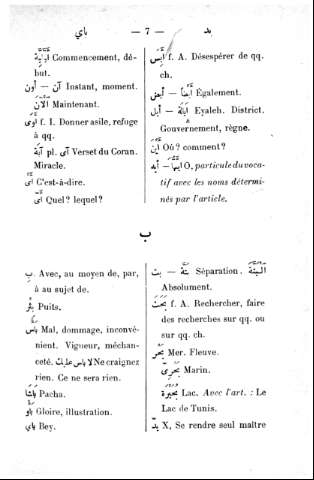 باي — 7 — بد
اوّليّة Commencement, dé-
but.
آن — أون Instant, moment.
الآن Maintenant.
أوى f. I. Donner asile, refuge
à qq.
آية pl. آي Verset du Coran.
Miracle.
أي C'est-à-dire.
أيّ Quel? lequel?
f. A. Désespérer de qq.
ch.
أيضًا — أيض Également.
أيالة — أيل Eyaleh. District.
Gouvernement, règne.
أين Où? comment?
أيّها — أيه O, particule du voca-
tif avec les noms détermi-
nés par l'article.
ب
بِ Avec, au moyen de, par,
à au sujet de.
بئر Puits.
بأس Mal, dommage, inconvé-
nient. Vigueur, méchan-
ceté. لا بأس عليك Ne craignez
rien. Ce ne sera rien.
باشا Pacha.
باو Gloire, illustration.
باي Bey.
بتّ — بتّة Séparation. البتّة
Absolument.
بحث f. A. Rechercher, faire
des recherches sur qq. ou
sur qq. ch.
بحر Mer. Fleuve.
بحريّ Marin.
بحيرة Lac. Avec l'art. : Le
Lac de Tunis.
بدّ X, Se rendre seul maître